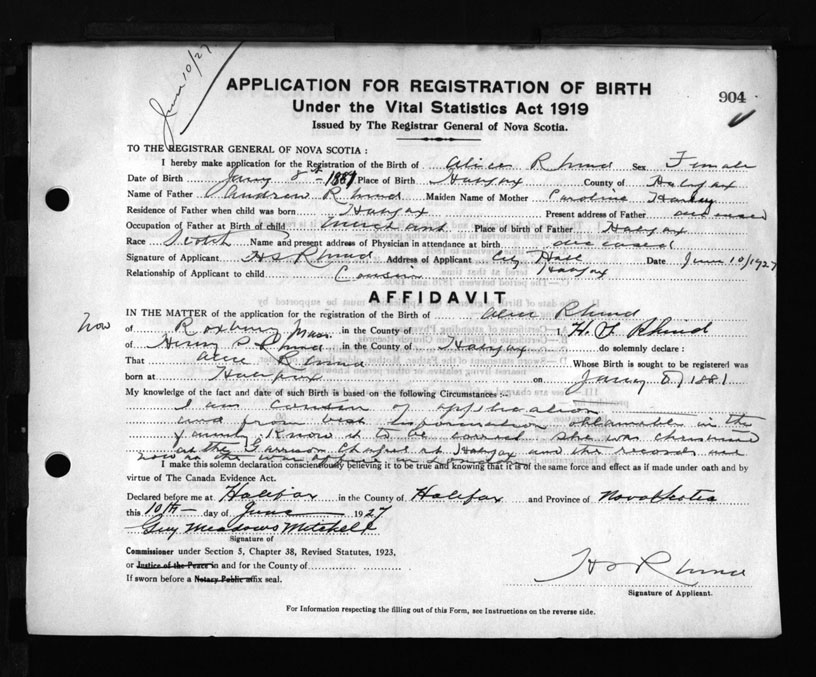 June 10/27
APPLICATION FOR REGISTRATION OF BIRTH
904
Under the Vital Statistics Act 1919
Issued by The Registrar General of Nova Scotia.
TO THE REGISTRAR GENERAL OF NOVA SCOTIA :
I hereby make application for the Registration of the Birth of Alice Rhind Sex Female
Date of Birth Jany 8th 1881 Place of Birth Halifax County of Halifax
Name of Father Andrew Rhind Maiden Name of Mother Caroline
Residence of Father when child was born Halifax Present address of Father deceased
Occupation of Father at Birth of child Merchant Place of birth of Father Halifax
Race Scotch Name and present address of Physician in attendance at birth deceased
Signature of Applicant H S Rhind Address of Applicant City Hall Date June 10/1927
Relationship of Applicant to child Cousin Halifax
AFFIDAVIT
IN THE MATTER of the application for the registration of the Birth of Alice Rhind
now of Roxbury Mass. in the County of I, H. S. Rhind
of Henry S. Rhind in the County of Halifax do solemnly declare :
That Alice Rhind Whose Birth is sought to be registered was
born at Halifax on Jany 8, 1881
My knowledge of the fact and date of such Birth is based on the following Circumstances :—
I am cousin of application
and from best information obtainable in the
family know it to be correct she was christened
at the Garrison Chapel at Halifax and the records are
now in the War Office in London
I make this solemn declaration conscientiously believing it to be true and knowing that it is of the same force and effect as if made under oath and by
virtue of The Canada Evidence Act.
Declared before me at Halifax in the County of Halifax and Province of Nova Scotia
this 10th day of June 1927
Guy Meadows Mitchell
Signature of
Commissioner under Section 5, Chapter 38, Revised Statutes, 1923,
or Justice of the Peace in and for the County of
If sworn before a Notary Public affix seal.
H S Rhind
Signature of Applicant.
For Information respecting the filling out of this Form, see Instructions on the reverse side.